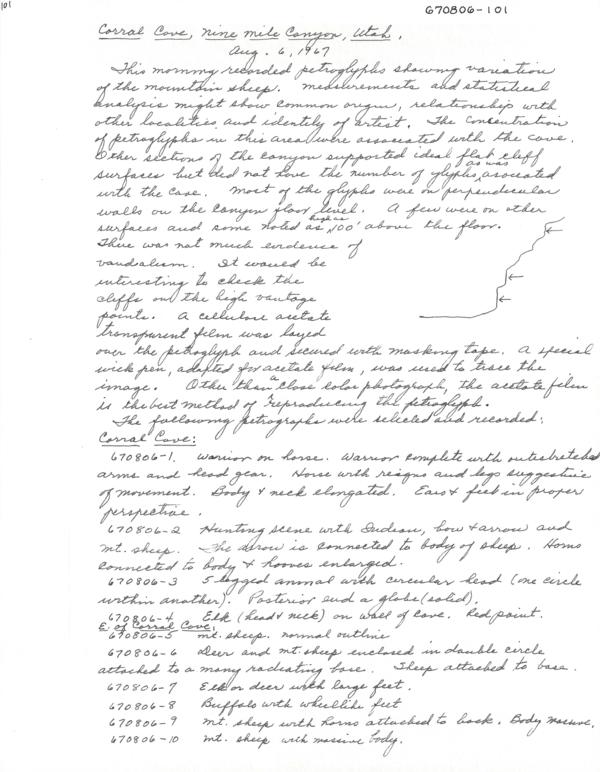 101
670806-101
Corral Cove, Nine Mile Canyon, Utah.
Aug. 6, 1967
This morning recorded petroglyphs showing variation
of the mountain sheep. Measurements and statistical
analysis might show common origin, relationship with
other localities and identity of artist. The concentration
of petroglyphs in this area were associated with the cove.
Other sections of the canyon supported ideal flat cliff
surfaces but did not have the number of glyphs as was asociated
with the Cove. Most of the glyphs were on perpendicular
walls on the canyon floor level. A few were on other
surfaces and some noted as high as 100' above the floor.
There was not much evidence of
vandalism. It would be
interesting to check the
cliffs on the high vantage
points. A cellulose acetate
transparent film was layed
over the petroglyph and secured with masking tape. A special
wick pen, adapted for acetate film, was used to trace the
image. Other than a close color photograph, the acetate film
is the best method of reproducing the petroglyph.
The following petrographs were selected and recorded:
Corral Cove:
670806-1. Warrior on horse. Warrior complete with outstretched
arms and head gear. Horse with reigns and legs suggestive
of movement. Body & neck elongated. Ears & feet in proper
perspective.
670806-2 Hunting scene with Indian, bow & arrow and
mt. sheep. The arrow is connected to body of sheep. Horns
connected to body & hooves enlarged.
670806-3 5 legged animal with circular head (one circle
within another). Posterior end a globe (solid).
670806-4 Elk (head & neck) on wall of cove. Red paint.
E. of Corral Cove:
670806-5 mt. sheep. normal outline
670806-6 Deer and mt. sheep enclosed in double circle
attached to a many radiating base. Sheep attached to base.
670806-7 Elk or deer with large feet.
670806-8 Buffalo with wheellike feet
670806-9 mt. sheep with horns attached to back. Body massive.
670806-10 mt. sheep with massive body.